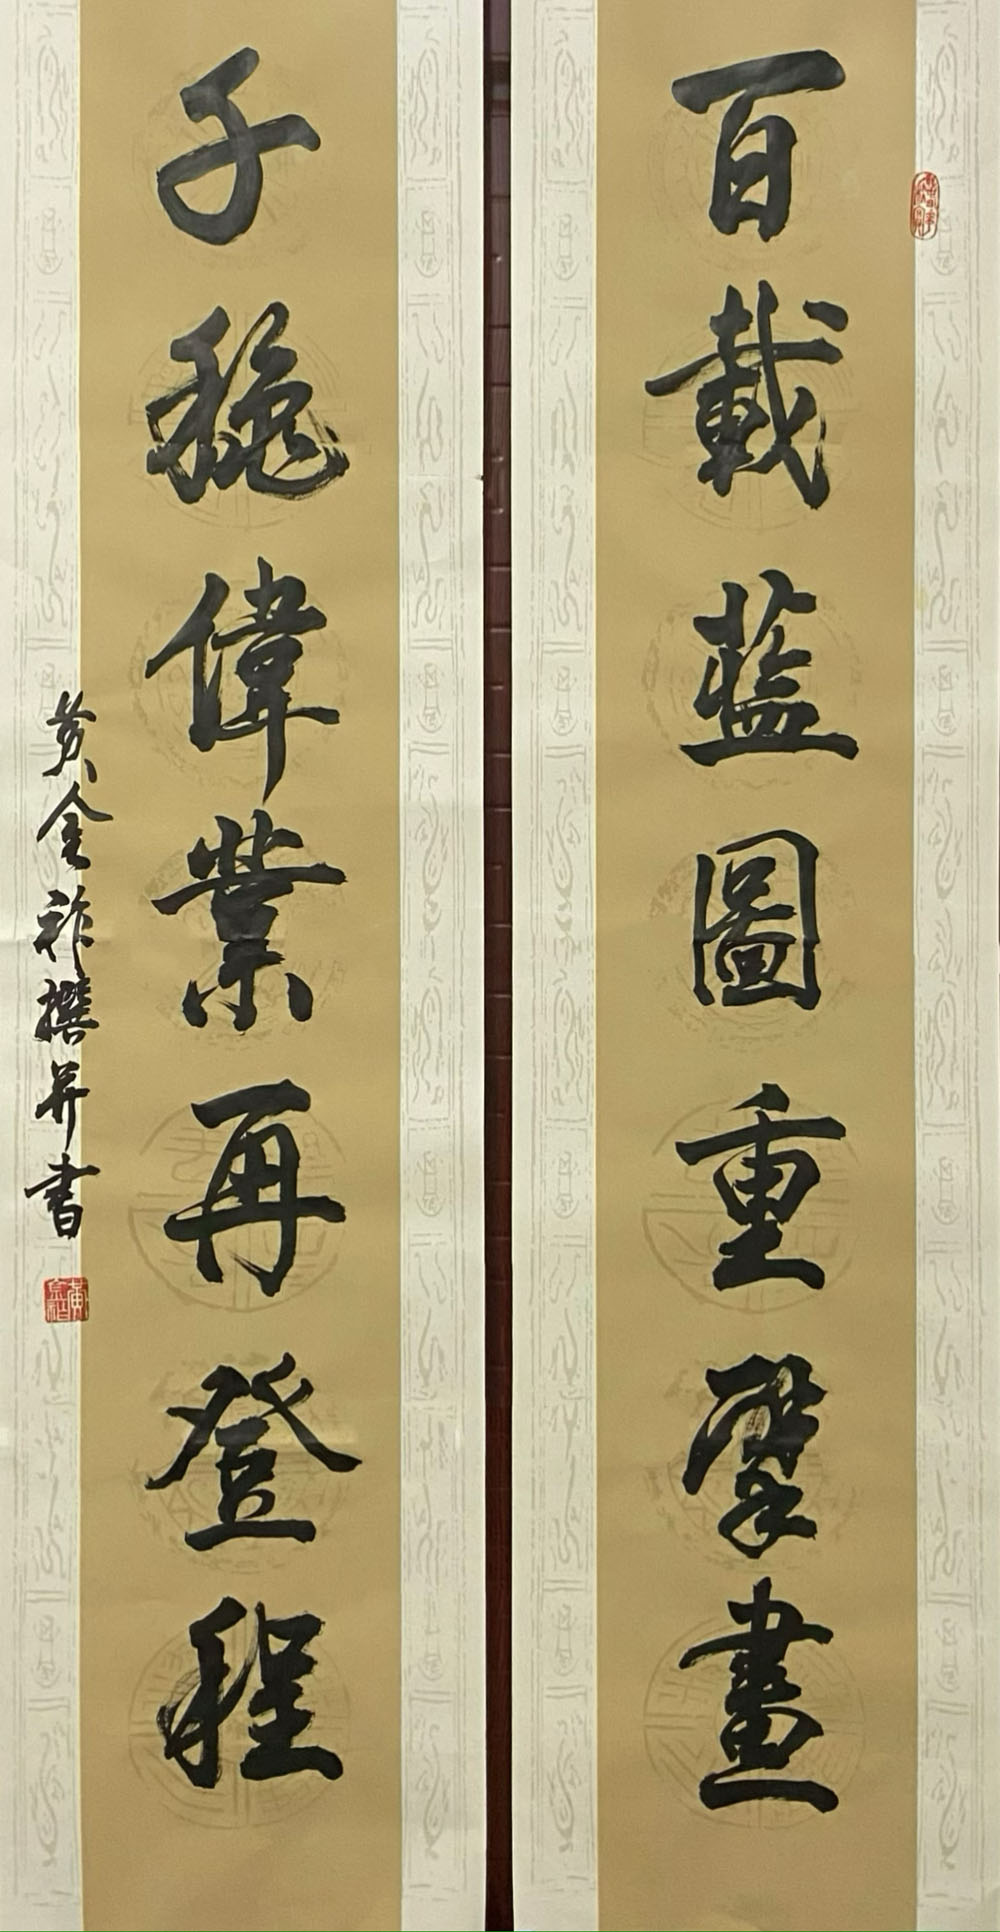 百載藍圖重擘畫
千秋偉業再登程
黃金祚撰并書